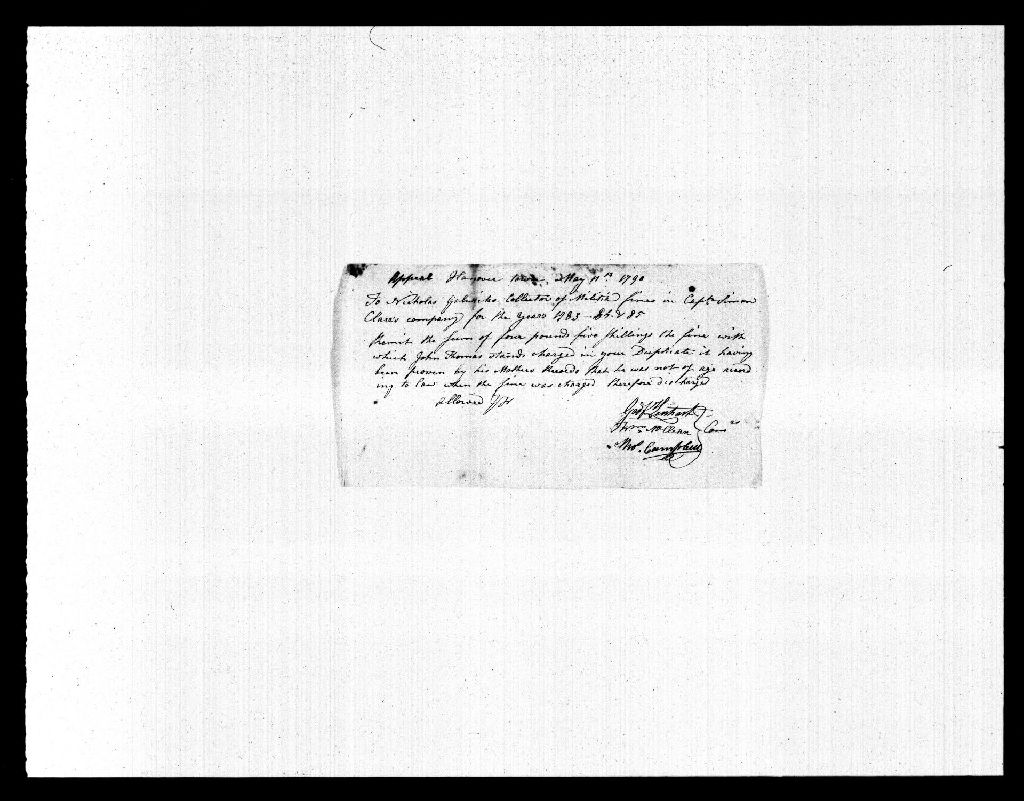 Appeal Hanover town May 11th 1790
To Nicholas Collector of Militia fines in Capt Simon
Clare's company for the years 1783 84 & 85
Remit the sum of four pounds five shillings the fine with
which John Thomas stands charged in your Duplicate it having
been proven by his Mothers Records that he was not of age accord
ing to Law when the fine was charged therefore discharged
allowed
Thos McClean Comrs
Campbell